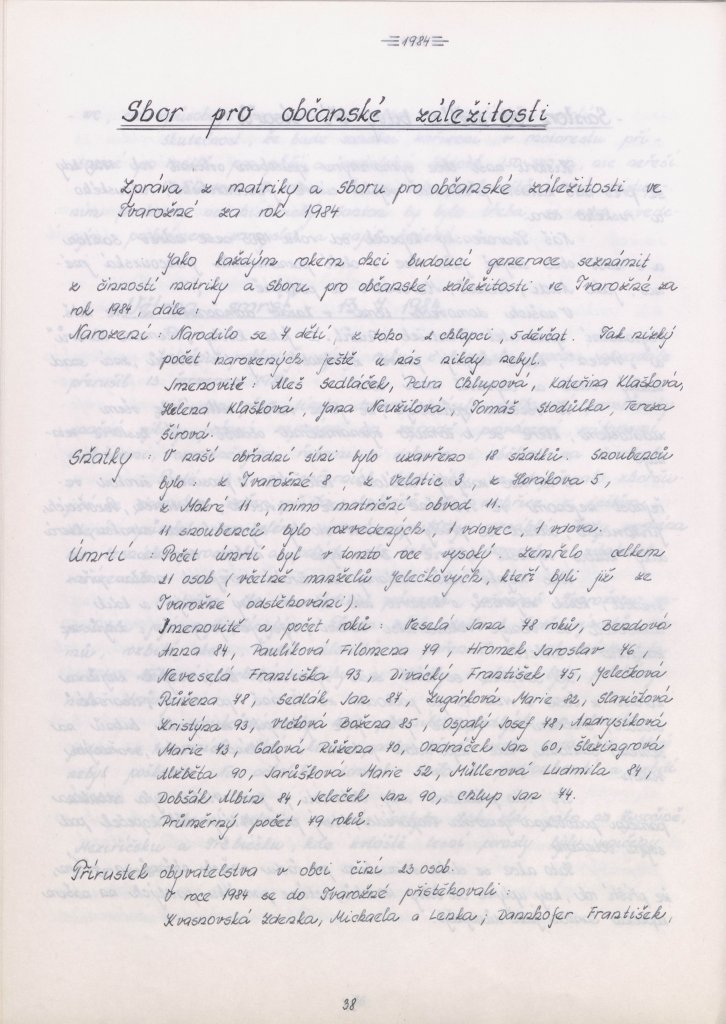 1984
Sbor pro občanské záležitosti
Zpráva z matriky a sboru pro občanské záležitosti ve
Tvarožné za rok 1984
Jako každým rokem chci budoucí generace seznámit
z činností matriky a sboru pro občanské záležitosti ve Tvarožné za
rok 1984, dále:
Narození: Narodilo se 7 dětí z toho 2 chlapci, 5 děvčat. Tak nízký
počet narozených ještě u nás nikdy nebyl.
Jmenovitě: Aleš Sedláček, Petra Chlupová, Kateřina Klašková,
Helena Klašková, Jana Neužilová, Tomáš Stodůlka, Tereza
Šírová.
Sňatky: V naší obřadní síni bylo uzavřeno 18 sňatků. Snoubenců
bylo: z Tvarožné 8, z Velatic 3, z Horákova 5,
z Mokré 11, mimo matriční obvod 11.
11 snoubenců bylo rozvedených, 1 vdovec, 1 vdova.
Úmrtí: Počet úmrtí byl v tomto roce vysoký. Zemřelo celkem
21 osob (včetně manželů Jelečkových, kteří byli již ze
Tvarožné odstěhováni).
Jmenovitě a počet roků: Veselá Jana 78 roků, Bendová
Anna 84, Paulíková Filomena 79, Hromek Jaroslav 76,
Neveselá Františka 93, Divácký František 75, Jelečková
Růžena 78, Sedlák Jan 87, Zugárková Marie 82, Slavíčková
Kristýna 93, Vlčková Božena 85, Ospalý Josef 78, Andrysíková
Marie 73, Galová Růžena 70, Ondráček Jan 60, Šlezingrová
Alžběta 90, Jarůšková Marie 52, Müllerová Ludmila 84,
Dobšák Albín 84, Jeleček Jan 90, Chlup Jan 74.
Průměrný počet 79 roků.
Přírustek obyvatelstva v obci činí 23 osob.
V roce 1984 se do Tvarožné přistěhovali:
Kvasnovská Zdenka, Michaela a Lenka; Dannhofer František,
38